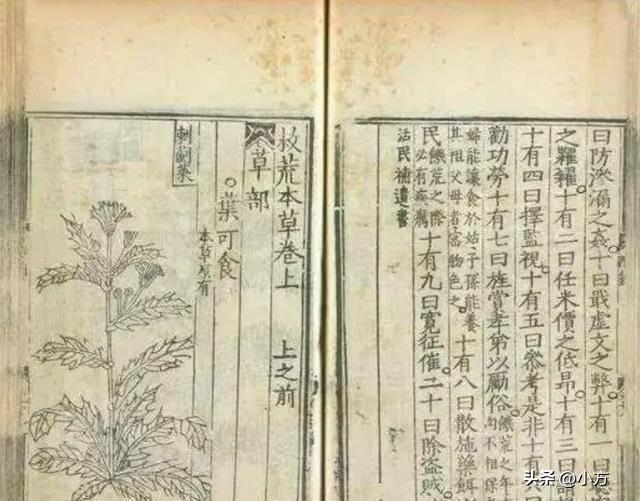 曰防滲漏之姦十曰戢虛文之弊十有一曰
之糶糴十有二曰任米價之低昂十有三曰
十有四曰擇監視十有五曰參考是非十有
勸功勞十有七曰旌當孝弟以勵俗饑荒之年肉不相保
婦能讓食於姑子孫能養其祖父母者當物色之十有八曰散施藥餌
民饑荒之際必有疾癘十有九曰寬征催二十曰除盜賊
活民補遺書
救荒本草卷上 上之前
草部
葉可食
本草原有
刺薊菜
头条 @小方